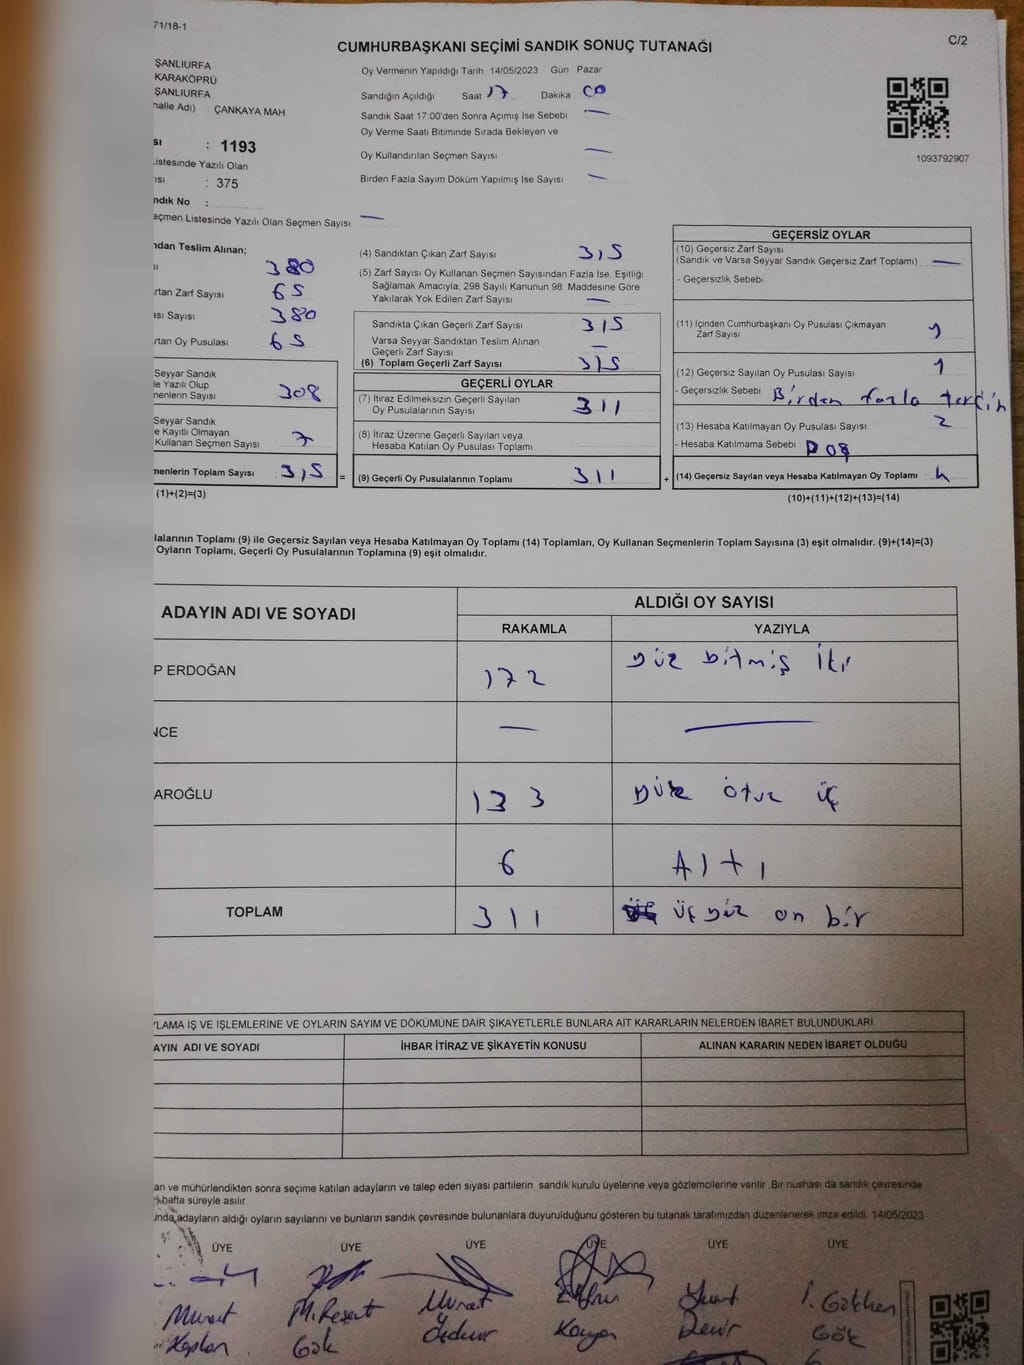 71/18-1
C/2
CUMHURBAŞKANI SEÇİMİ SANDIK SONUÇ TUTANAĞI
ŞANLIURFA
KARAKÖPRÜ
ŞANLIURFA
halle Adı) ÇANKAYA MAH.
Oy Vermenin Yapıldığı Tarih 14/05/2023 Gün Pazar
Sandığın Açıldığı Saat 17 Dakika 00
Sandık Saat 17:00'den Sonra Açımış İse Sebebi —
Oy Verme Saati Bitiminde Sırada Bekleyen ve
Oy Kullandırılan Seçmen Sayısı —
Birden Fazla Sayım Döküm Yapılmış İse Sayısı —
1093792907
sı : 1193
Listesinde Yazılı Olan
ısı : 375
ndık No :
eçmen Listesinde Yazılı Olan Seçmen Sayısı —
ndan Teslim Alınan;
ı 380
rtan Zarf Sayısı 65
ısı Sayısı 380
rtan Oy Pusulası 65
Seyyar Sandık
le Yazılı Olup
menlerin Sayısı 308
Seyyar Sandık
e Kayıtlı Olmayan
Kullanan Seçmen Sayısı 7
menlerin Toplam Sayısı 315 =
(1)+(2)=(3)
(4) Sandıktan Çıkan Zarf Sayısı 315
(5) Zarf Sayısı Oy Kullanan Seçmen Sayısından Fazla İse, Eşitliği
Sağlamak Amacıyla, 298 Sayılı Kanunun 98. Maddesine Göre
Yakılarak Yok Edilen Zarf Sayısı —
Sandıkta Çıkan Geçerli Zarf Sayısı 315
Varsa Seyyar Sandıktan Teslim Alınan
Geçerli Zarf Sayısı —
(6) Toplam Geçerli Zarf Sayısı 315
GEÇERLİ OYLAR
(7) İtiraz Edilmeksizin Geçerli Sayılan
Oy Pusulalarının Sayısı 311
(8) İtiraz Üzerine Geçerli Sayılan veya
Hesaba Katılan Oy Pusulası Toplamı
(9) Geçerli Oy Pusulalarının Toplamı 311 +
GEÇERSİZ OYLAR
(10) Geçersiz Zarf Sayısı
(Sandık ve Varsa Seyyar Sandık Geçersiz Zarf Toplamı) —
- Geçersizlik Sebebi
(11) İçinden Cumhurbaşkanı Oy Pusulası Çıkmayan
Zarf Sayısı 1
(12) Geçersiz Sayılan Oy Pusulası Sayısı 1
- Geçersizlik Sebebi Birden fazla tercih
(13) Hesaba Katılmayan Oy Pusulası Sayısı 2
- Hesaba Katılmama Sebebi :
(14) Geçersiz Sayılan veya Hesaba Katılmayan Oy Toplamı : 4
(10)+(11)+(12)+(13)=(14)
lalarının Toplamı (9) ile Geçersiz Sayılan veya Hesaba Katılmayan Oy Toplamı (14) Toplamları, Oy Kullanan Seçmenlerin Toplam Sayısına (3) eşit olmalıdır. (9)+(14)=(3)
Oyların Toplamı, Geçerli Oy Pusulalarının Toplamına (9) eşit olmalıdır.
ADAYIN ADI VE SOYADI
ALDIĞI OY SAYISI
RAKAMLA YAZIYLA
P ERDOĞAN 172 yüz yitmiş iki
NCE — —
AROĞLU 133 yüz otuz üç
6 Altı
TOPLAM 311 üç yüz on bir
LAMA İŞ VE İŞLEMLERİNE VE OYLARIN SAYIM VE DÖKÜMÜNE DAİR ŞİKAYETLERLE BUNLARA AİT KARARLARIN NELERDEN İBARET BULUNDUKLARI
AYIN ADI VE SOYADI İHBAR İTİRAZ VE ŞİKAYETİN KONUSU ALINAN KARARIN NEDEN İBARET OLDUĞU
an ve mühürlendikten sonra seçime katılan adayların ve talep eden siyasi partilerin sandık kurulu üyelerine veya gözlemcilerine verilir. Bir nüshası da sandık çevresinde
hafta süreyle asılır.
ında,adayların aldığı oyların sayılarını ve bunların sandık çevresinde bulunanlara duyurulduğunu gösteren bu tutanak tarafımızdan düzenlenerek imza edildi. 14/05/2023
ÜYE ÜYE ÜYE ÜYE ÜYE ÜYE
Murat M.Reşat Murat
Kaplan Gök Demir Gök